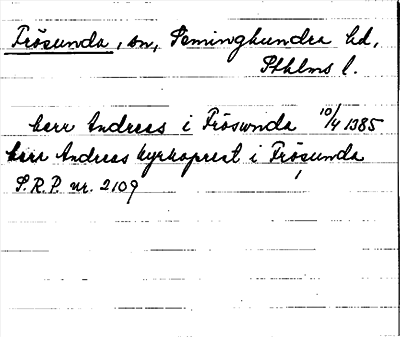 Frösunda, sn, Seminghundra hd,
Sthlms l.
herr Andrees i Frösunda 10/4 1385
herr Andrees kyrkoprest i Frösunda
S.R.P. nr. 2109